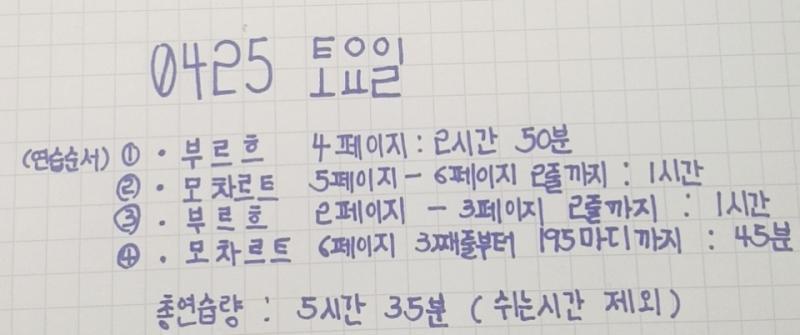 0425 토요일
(연습순서) ① · 부르흐 4페이지 : 2시간 50분
② · 모차르트 5페이지 - 6페이지 2줄까지 : 1시간
③ · 부르흐 2페이지 - 3페이지 2줄까지 : 1시간
④ · 모차르트 6페이지 3째줄부터 195마디까지 : 45분
총연습량 : 5시간 35분 ( 쉬는시간 제외 )